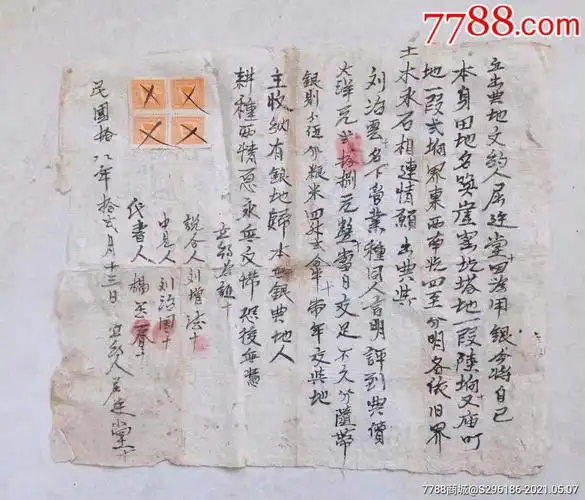 7788.com
立出典地文约人屈廷堂因為用銀今將自己
本身田地名喚崖窑圪塔地一段陸垧又庙
地一段弍垧界東西南北四至分明各依旧界
土木水石相連情願出典與
刘治雲名下管業種同人言明評到典價
大洋元弍拾捌元整當日交足不欠分隨帶
銀則分伍分粮米四升弍合半常年交與地
主收納有銀地歸本無銀典地人
耕種兩情意永無反悔恐後無憑
立約為証十
說合人刘增
中見人刘治國十
代書人楊
民國拾八年拾弍月十三日立約人屈廷堂十
7788商城@S296186-2021.05.07